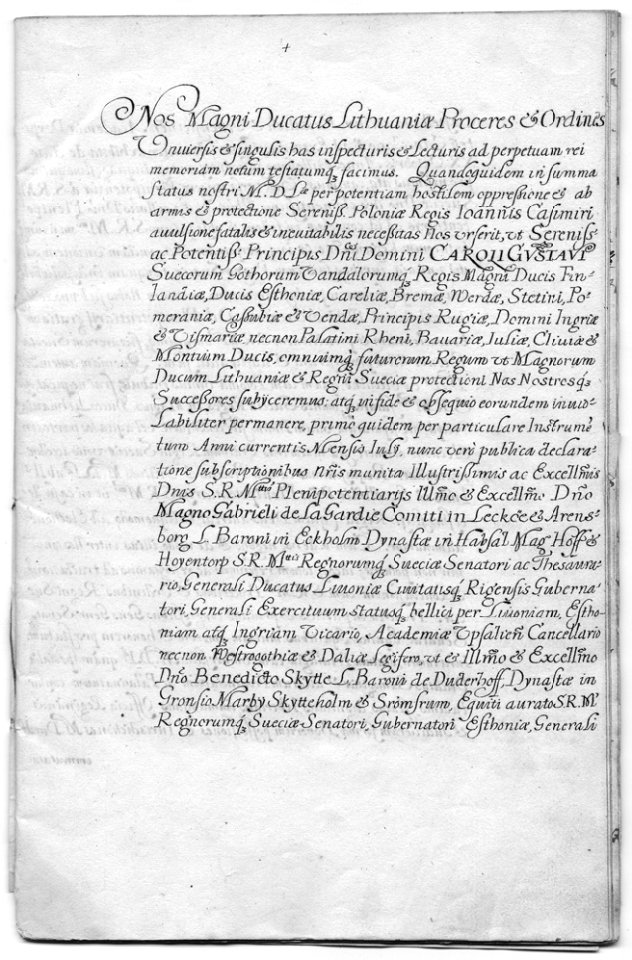 Nos Magni Ducatus Lithuaniæ Proceres & Ordines
Vniversis & singulis has inspecturis & Lecturis ad perpetuam rei
memoriam notum testatumq, facimus. Quandoquidem in summa
status nostri M. D. Læ per potentiam hostilem oppressione & ab
armis & protectione Sereniss. Poloniæ Regis Ioannis Casimiri
avulsione fatalis & ineuitabilis necessitas nos urserit, ut Sereniss.
ac Potentiss. Principis Dni Domini CAROLI GVSTAVI
Suecorum Gothorum Vandalorumq, Regis Magni Ducis Fin-
landiæ, Ducis Esthoniæ, Careliæ, Bremæ, Werdæ, Stetini, Po-
meraniæ, Cassubiæ & Vendæ, Principis Rugiæ, Domini Ingriæ
& Vismariæ, necnon Palatini Rheni, Bauariæ, Iuliæ, Cliuiæ &
Montium Ducis, omniumq, futurorum Regum ut Magnorum
Ducum Lithuaniæ & Regni Sueciæ protectioni Nos Nostrosq,
Successores subijceremus, atq, in fide & obsequio eorundem inuio-
Labiliter permanere, primo quidem per particulare Instrumē
tum Anni currentis Mensis Iulij, nunc vero publica declara-
tione subscriptionibus nris munita Illustrissimis ac Excellmis
Dnis S. R. Mtis Plenipotentiarijs Illmo & Excellmo Dño
Magno Gabrieli de La Gardie Comiti in Leckoe & Arens-
borg L. Baroni in Eckholm Dynastæ in Hapsal Mag Hoff &
Hoyentorp S. R. Mtis Regnorumq, Sueciæ Senatori ac Thesaura-
rio, Generali Ducatus Liuoniæ Ciuitatisq, Rigensis Guberna-
tori, Generali Exercituum statusq, bellici per Liuoniam, Estho-
niam atq, Ingriam Vicario, Academiæ Vpsalien Cancellario
necnon Westrogothiæ & Daliæ Legifero, ut & Illmo & Excellmo
Dño Benedicto Skytte L. Baroni de Duderhoff, Dynastæ in
Gronsio Marby Skytteholm & Srömsrum, Equiti aurato S. R. Mtis
Regnorumq, Sueciæ Senatori, Gubernatori Esthoniæ, Generali